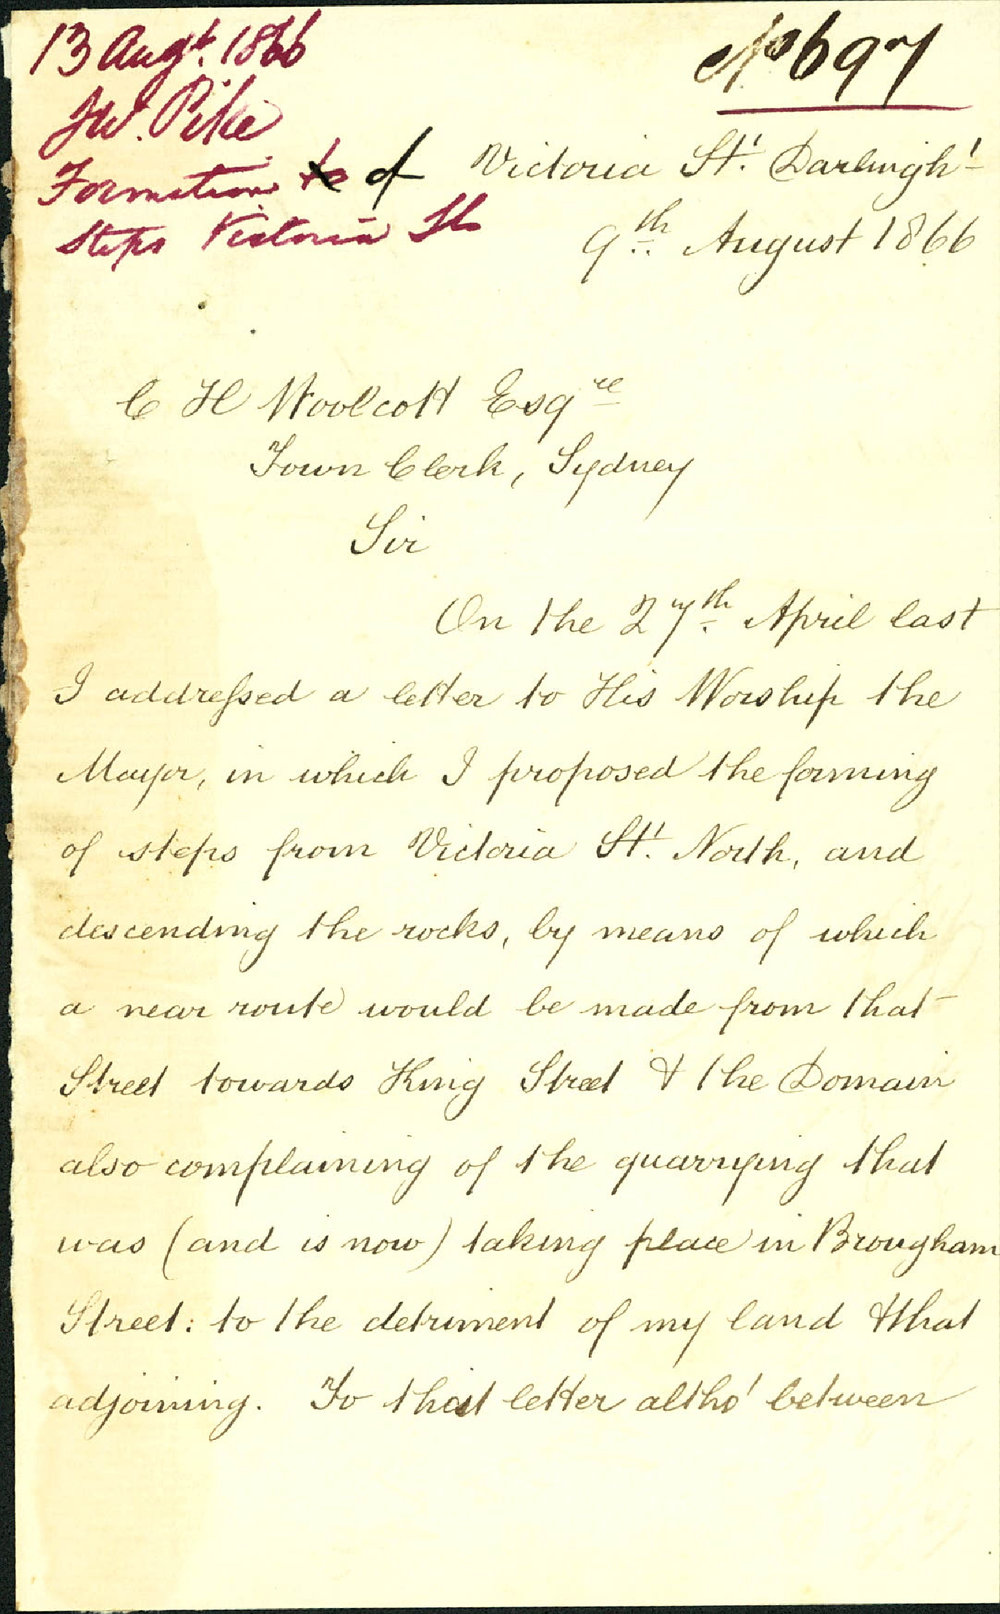 13 Augt. 1866
JW. Pike
Formation to of
Steps Victoria St
No 697
Victoria St. Darlinght
9th August 1866
C H Woolcott Esqre
Town Clerk, Sydney
Sir
On the 27th April last
I addressed a letter to His Worship the
Mayor, in which I proposed the forming
of steps from Victoria St. North, and
descending the rocks, by means of which
a near route would be made from that
Street towards King Street & the Domain
also complaining of the quarrying that
was (and is now) taking place in Brougham
Street: to the detriment of my land & that
adjoining. To that letter altho' between